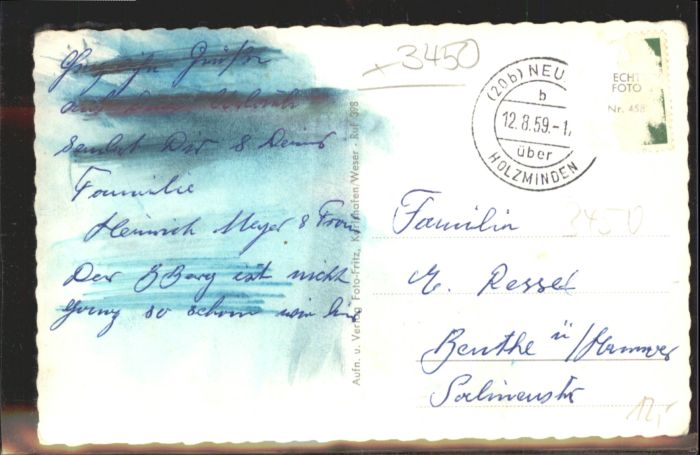 Grüße
aus dem Urlaub
sendet Dir & Deiner
Familie
Heinrich Meyer & Frau
Der Berg ist nicht
ganz so schön wie
3450
(20b) NEU
b
12.8.59.-1
über
HOLZMINDEN
ECHT
FOTO
Nr. 458
Aufn. u. Verlag Foto-Fritz, Karlshafen/Weser - Ruf 398
Familie
3450
E. Ressel
Benthe ü/Hannover
Salinenstr
12,-